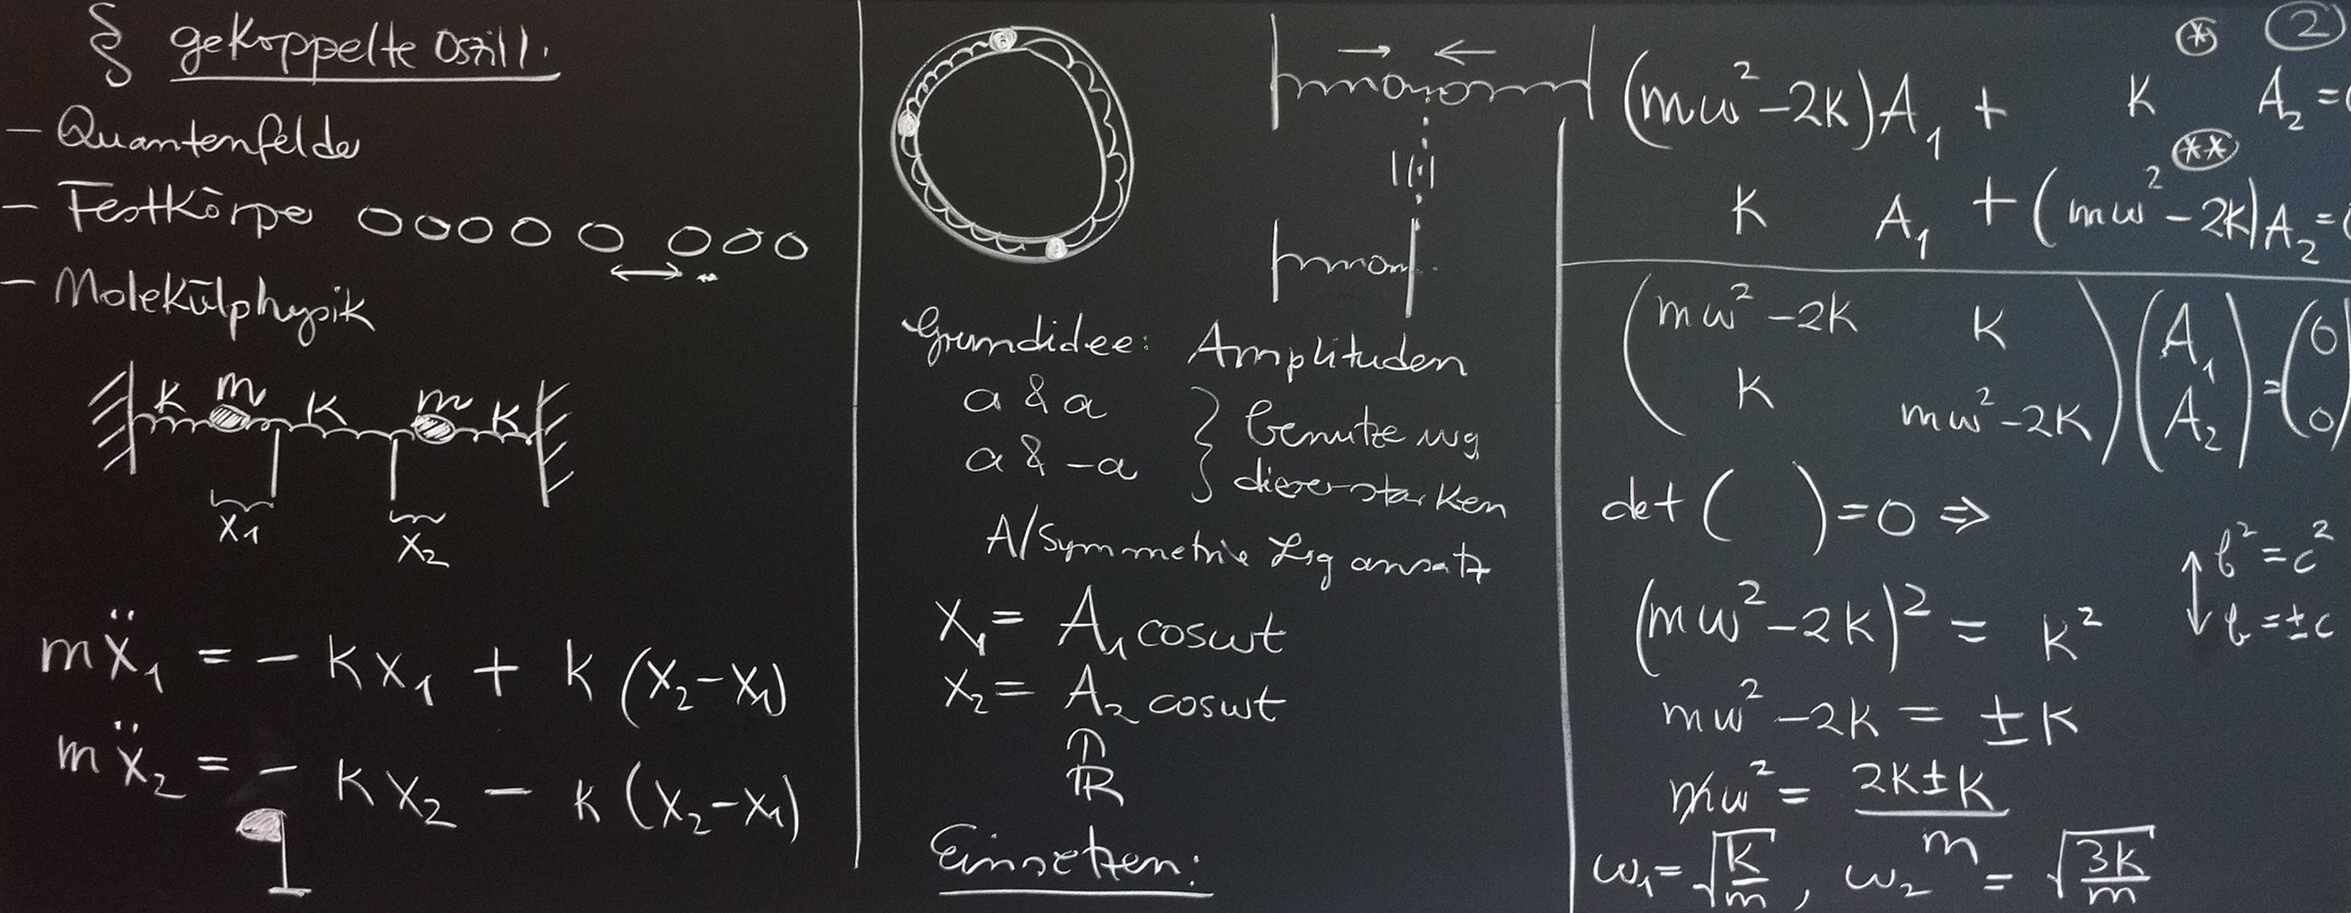 § gekoppelte Oszill.
- Quantenfelder
- Festkörper
- Molekülphysik
k m k m k
x₁
x₂
mẍ₁ = - kx₁ + k (x₂-x₁)
mẍ₂ = - kx₂ - k (x₂-x₁)
Grundidee: Amplituden
a & a
a & -a } benutze
diese starken
A/Symmetrie Lsg ansatz
x₁ = A₁ cosωt
x₂ = A₂ cosωt
ℝ
Einsetzen:
(*) (2)
(mω²-2k)A₁ + k A₂ =
(**)
k A₁ + (mω²-2k)A₂ =
(mω²-2k k) (A₁) = (0)
(k mω²-2k) (A₂) (0)
det ( ) = 0 ⇒
b² = c²
↕
b = ±c
(mω²-2k)² = k²
mω²-2k = ±k
mω² = (2k±k)/m
ω₁ = √(k/m) , ω₂ = √(3k/m)